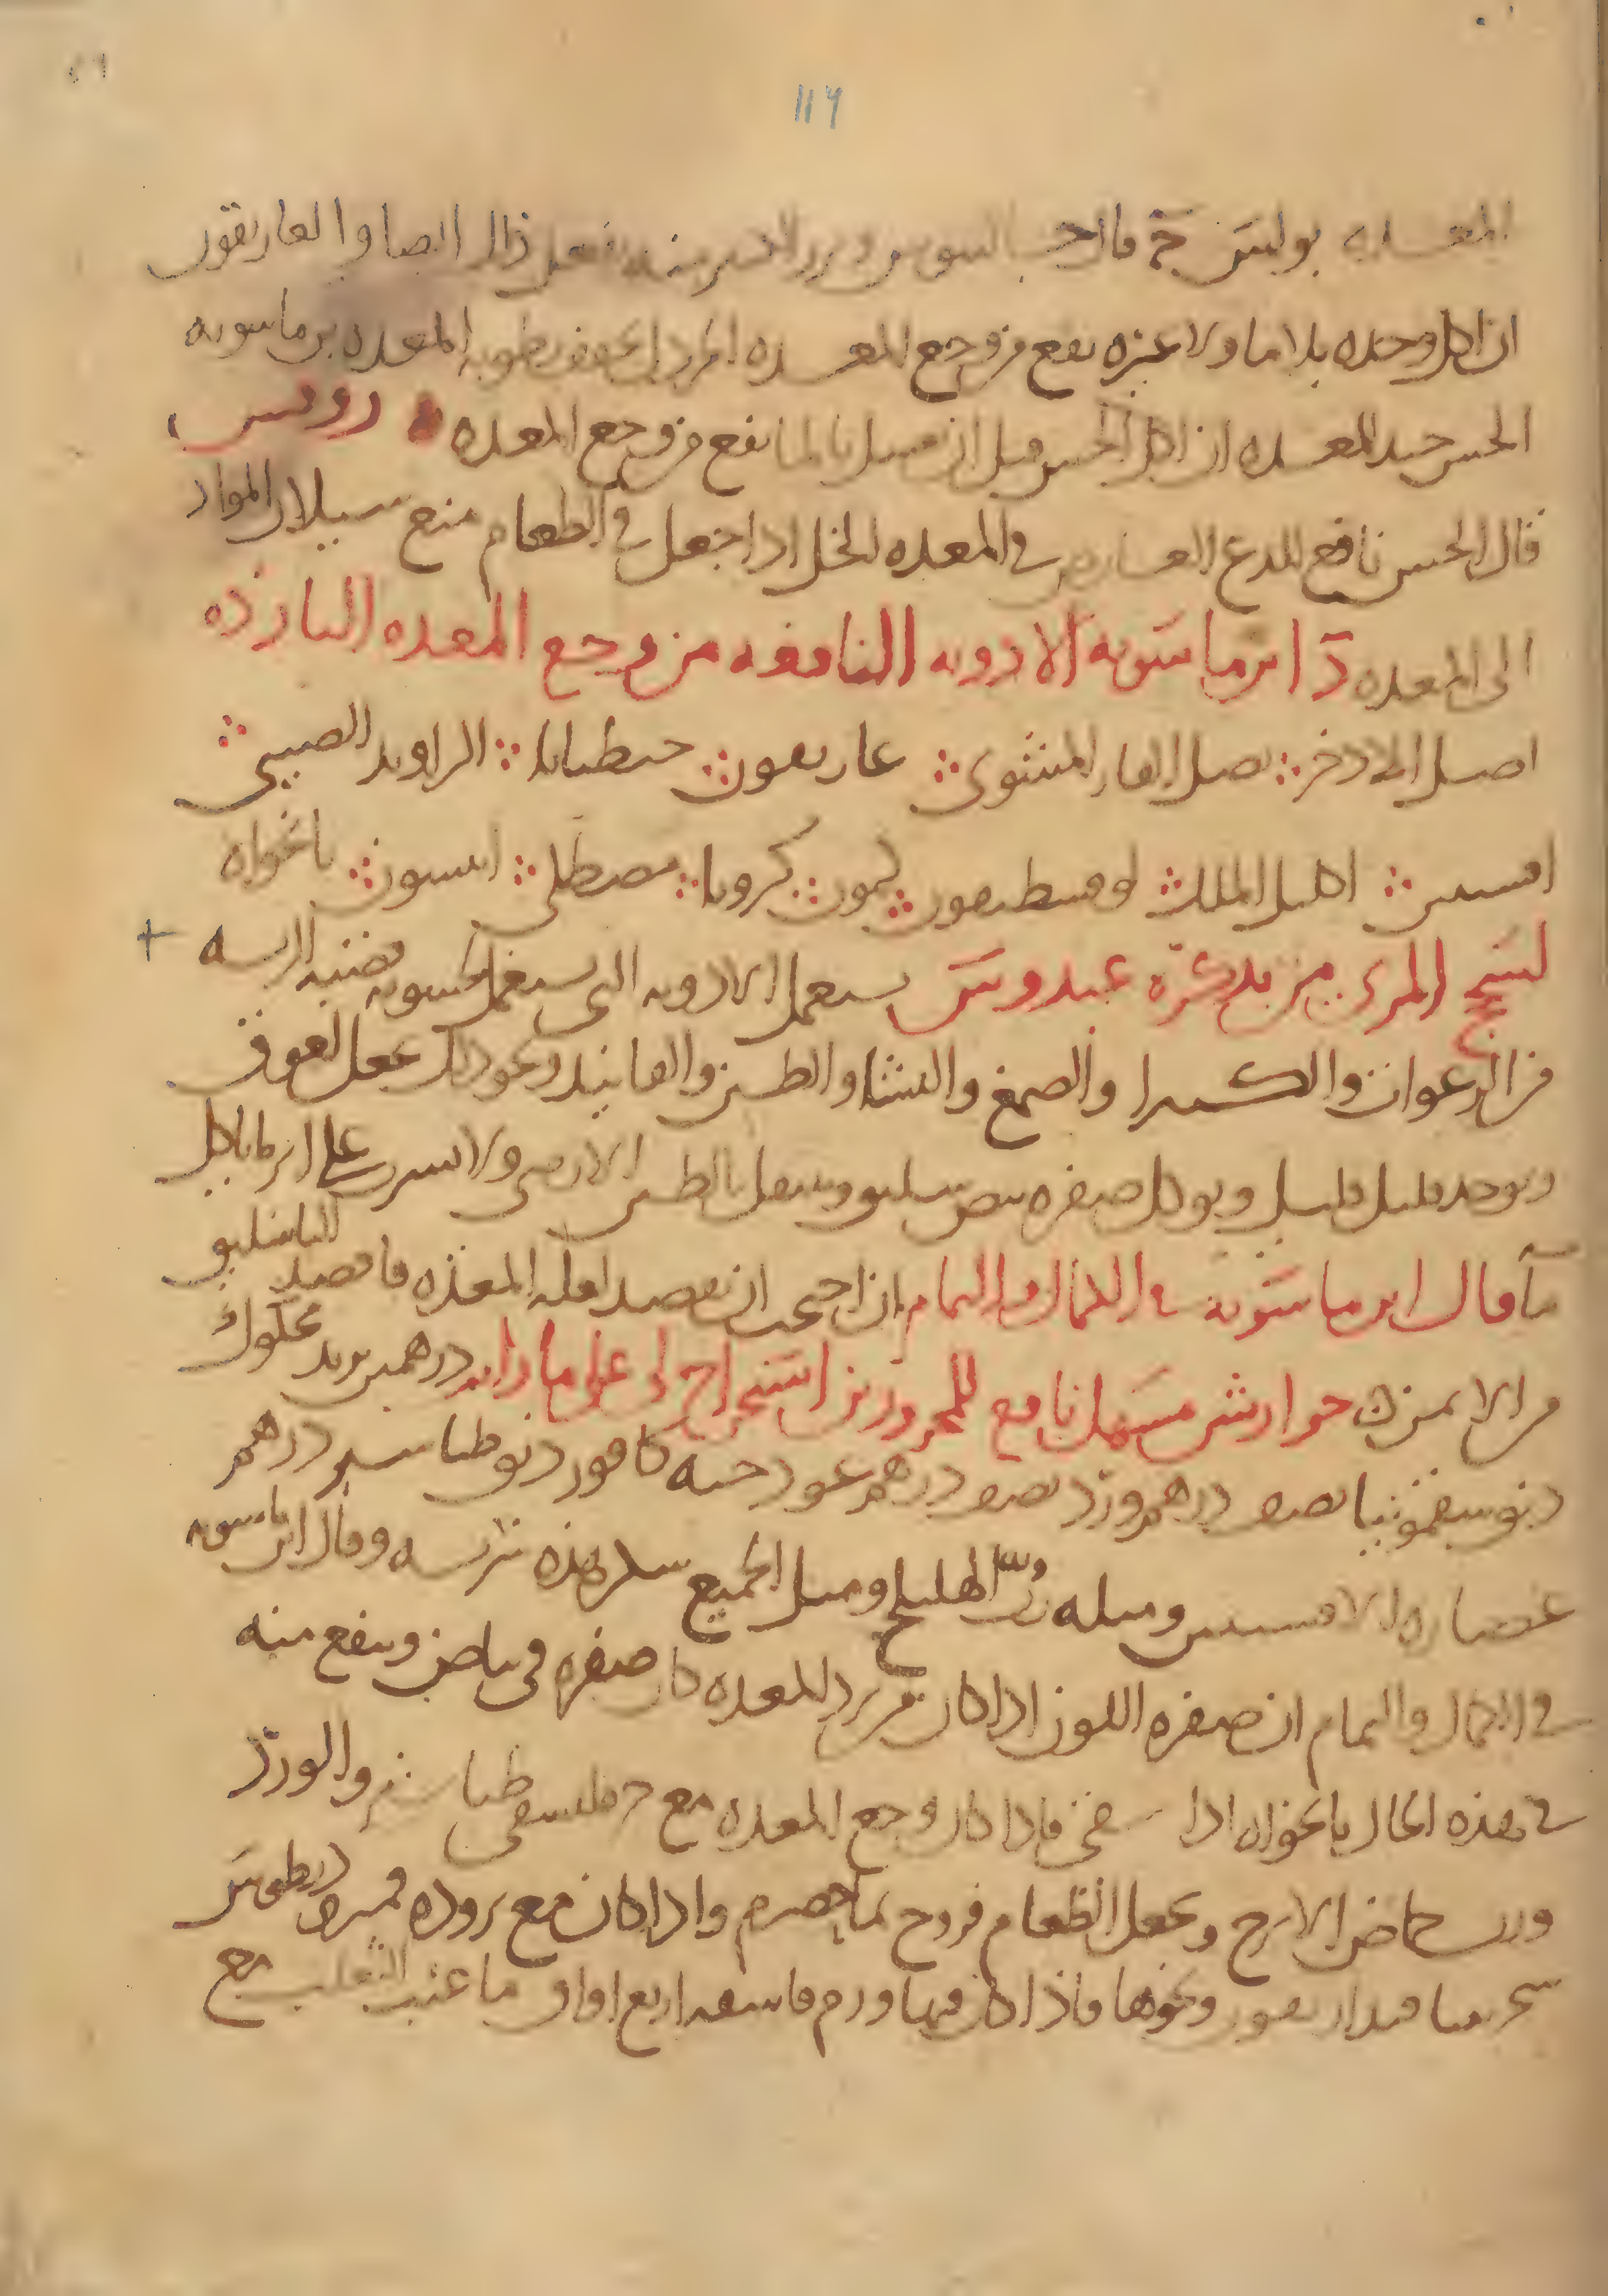 119
المعده بولس ج فاحب السوس وبزر منه يفعل ذلك ايضا والغاريقون
ان اكل وحده بلا ما ولا غيره نفع من وجع المعده الخردل يجفف رطوبه المعده بن ماسويه
الخس جيد للمعده ان اكل الخس قبل ان يغسل بالما نفع من وجع المعده روفس
قال الخس نافع للدع العارض في المعده الخل اذا جعل في الطعام منع سيلان المواد
الى المعده د ابن ماسويه الادويه النافعه من وجع المعده البارده
اصل الاذخر بصل الفار المشوى غاريقون جنطيانا الراوند الصيني
افسنتين اكليل الملك كمون كرويا مصطكى انيسون نانخواه
لسحج المرى من تذكرة عبدوس يستعمل الادويه التي
من البزرقوات والكثيرا والصمغ والنشا والطين والفانيد ونحو ذلك يجعل لعوق
ويوخذ قليل قليل ويوكل صفره بيض سليق وينتقل بالطين الارمني ولا يسرب على اثر ما ياكل
قال ابن ماسويه في الكمال والتمام ان احتجت ان تفصد لعله المعده فافصد الباسليق
من الايمن جوارشن مسهل نافع للمحرورين استخراج لي على ما رايت درهمين تربد محكوك
دنق سقمونيا نصف درهم ورد نصف درهم عود حبه كافور دنق طباشير درهم
عصاره الافسنتين ومثله رب الهليلج ومثل الجميع سكر هذه شربه وقال ابن ماسويه
في الكمال والتمام ان صفره اللون اذا كان من برد المعده كان صفره في بياض وينفع منه
في هذه الحال نانخواه اذا فاذا كان وجع المعده مع حر فليسقى طباشير والورد
ورب حماض الاترج ويجعل الطعام فروج بما حصرم واذا كان مع بروده
ونحوها فاذا كان فيها ورم فاسقه اربع اواق ما عنب الثعلب مع